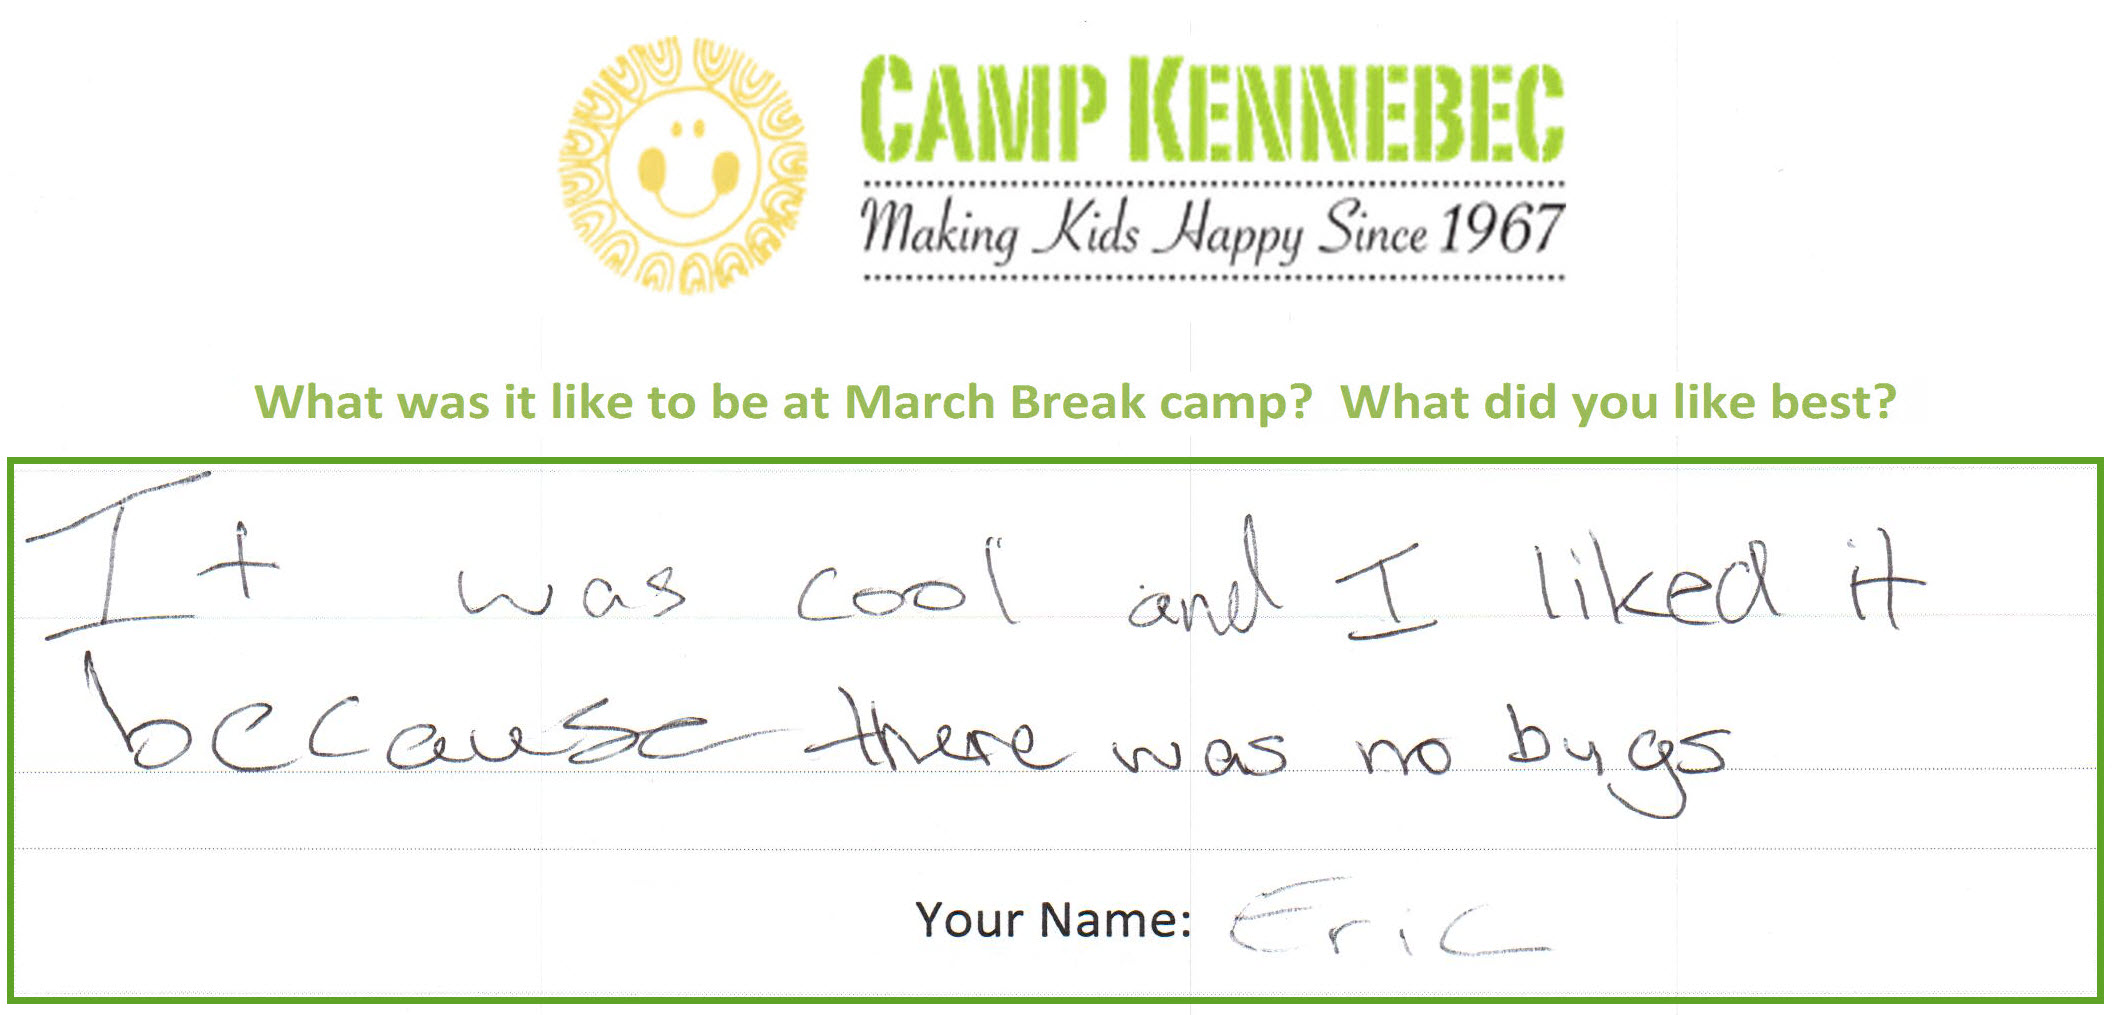 CAMP KENNEBEC
Making Kids Happy Since 1967
What was it like to be at March Break camp? What did you like best?
It was cool and I liked it
because there was no bugs
Your Name: Eric